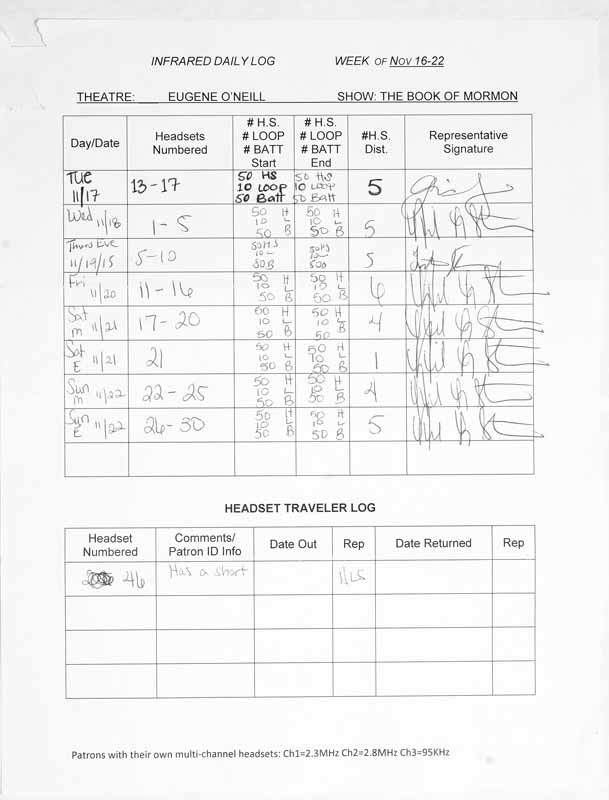 INFRARED DAILY LOG WEEK OF NOV 16-22
THEATRE: ___ EUGENE O'NEILL SHOW: THE BOOK OF MORMON
Day/Date Headsets Numbered # H.S. # LOOP # BATT Start # H.S. # LOOP # BATT End #H.S. Dist. Representative Signature
TUE 11/17 13-17 50 HS 10 LOOP 50 Batt 50 HS 10 Loop 50 Batt 5
Wed 11/18 1-5 50 H 10 L 50 B 50 H 10 L 50 B 5
Thurs Eve 11/19/15 5-10 50HS 10L 50B 50HS 10L 50B 5
Fri 11/20 11-16 50 H 10 L 50 B 50 H 10 L 50 B 6
Sat m 11/21 17-20 50 H 10 L 50 B 50 H 10 L 50 B 4
Sat E 11/21 21 50 H 10 L 50 B 50 H 10 L 50 B 1
Sun m 11/22 22-25 50 H 10 L 50 B 50 H 10 L 50 B 4
Sun E 11/22 26-30 50 H 10 L 50 B 50 H 10 L 50 B 5
HEADSET TRAVELER LOG
Headset Numbered Comments/ Patron ID Info Date Out Rep Date Returned Rep
46 Has a short
Patrons with their own multi-channel headsets: Ch1=2.3MHz Ch2=2.8MHz Ch3=95KHz